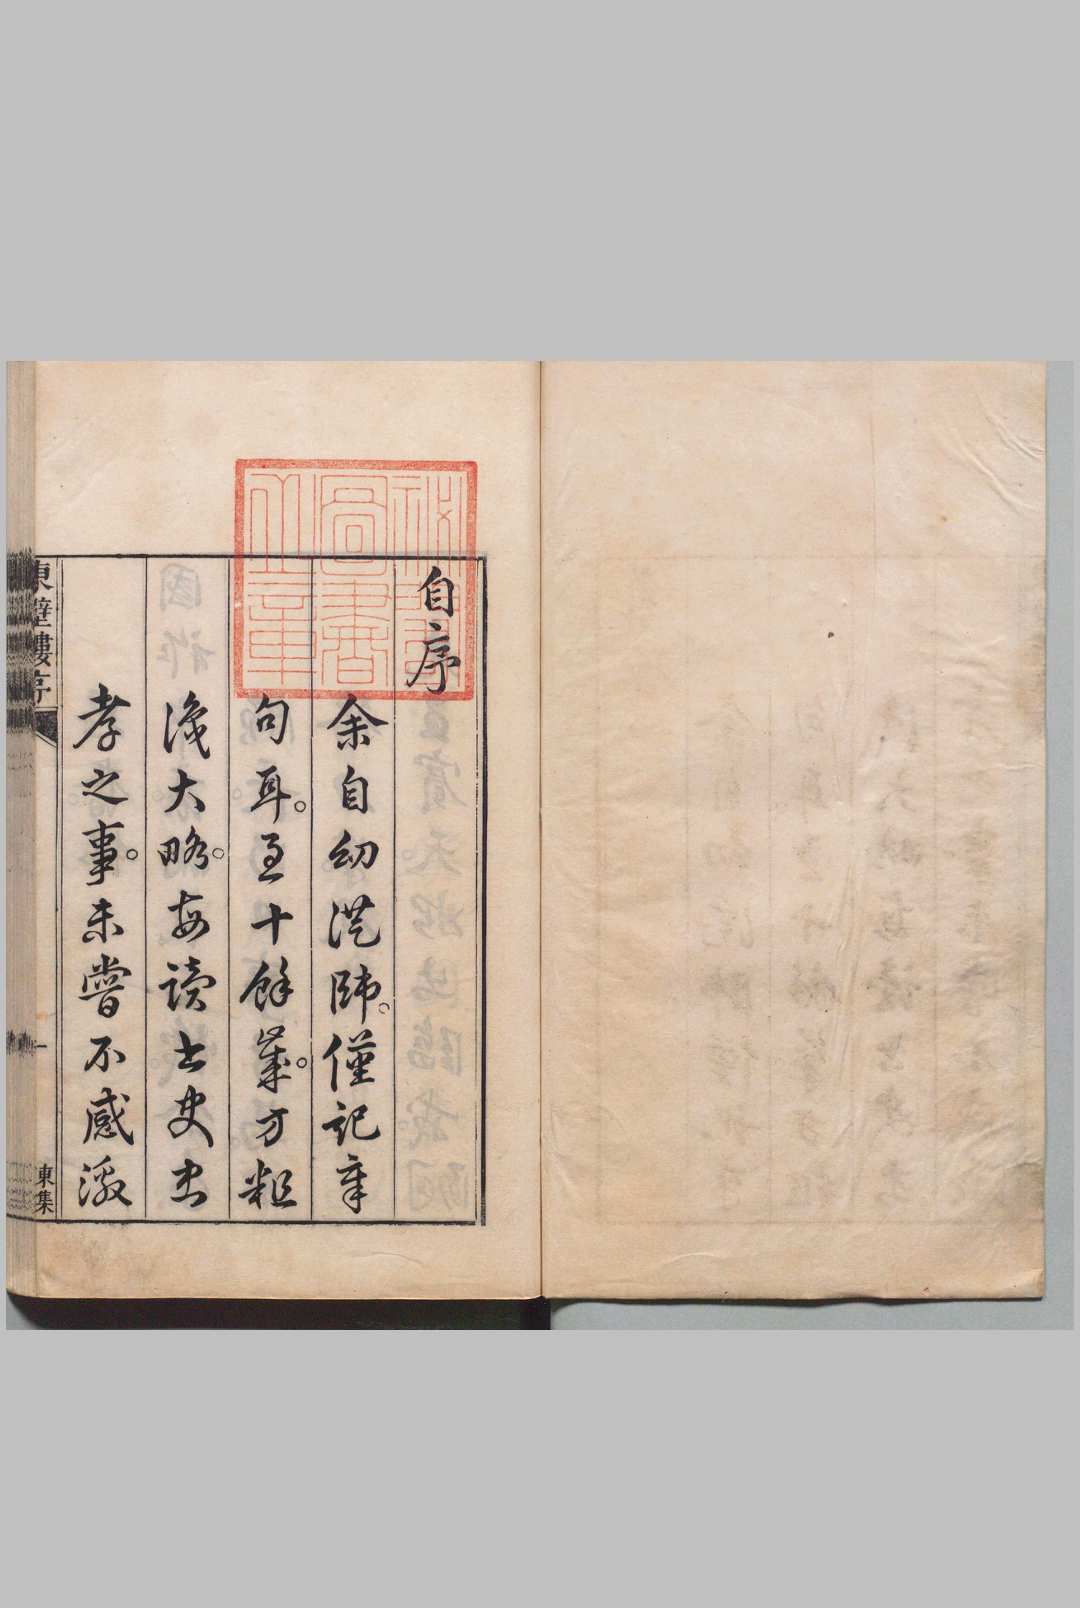 秘閣
圖書
之章
自序
余自幼從師。僅記章
句耳。至十餘歲。方粗
識大略。每讀古史忠
孝之事。未嘗不感激
東壁樓序
一
東集